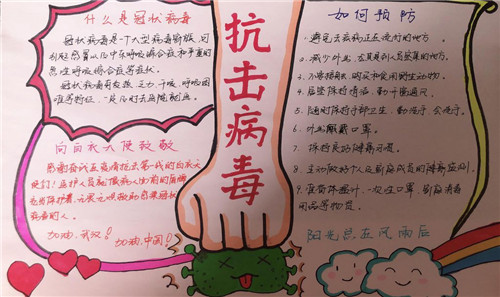 什么是冠状病毒
冠状病毒是一个大型病毒家族,可
引起感冒以及中东呼吸综合症和严重的
急性呼吸综合症等症状。
冠状病毒有发热、乏力、干咳、呼吸困
难等特征、一旦及时去医院就医。
向白衣天使致敬
感谢奋战在疫情抗击第一线的白衣天
使们!
病毒的人。
加油,武汉!
加油,中国!
抗击病毒
如何预防
1. 避免去疾病正在流行的地方。
2. 减少外出,尤其是到人员密集的地方。
3. 不要接触、购买和食用野生动物。
4. 居室保持清洁,勤开窗通风。
5. 随时保持手部卫生,勤洗手、会洗手。
6. 外出佩戴口罩。
7. 保持良好健康习惯。
8. 主动做好个人及家庭成员的健康监测。
9. 准备体温计、一次性口罩、家庭消毒
用品等物资。
阳光总在风雨后